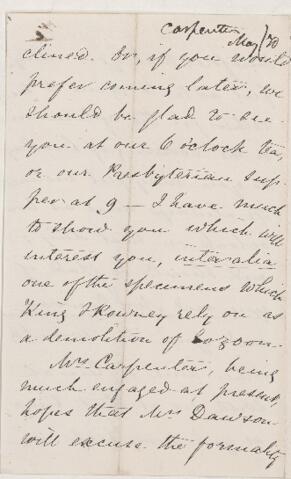 Carpenter
May /70
clined. Or, if you would
prefer coming later, we
should be glad to see
you at our 6 o'clock tea,
or our Presbyterian sup-
per at 9 — I have much
to show you which will
interest you, inter alia
one of the specimens which
King & Rowney rely on as
a demolition of Eozoon.
Mrs. Carpenter, being
much engaged at present,
hopes that Mrs Dawson
will excuse the formality